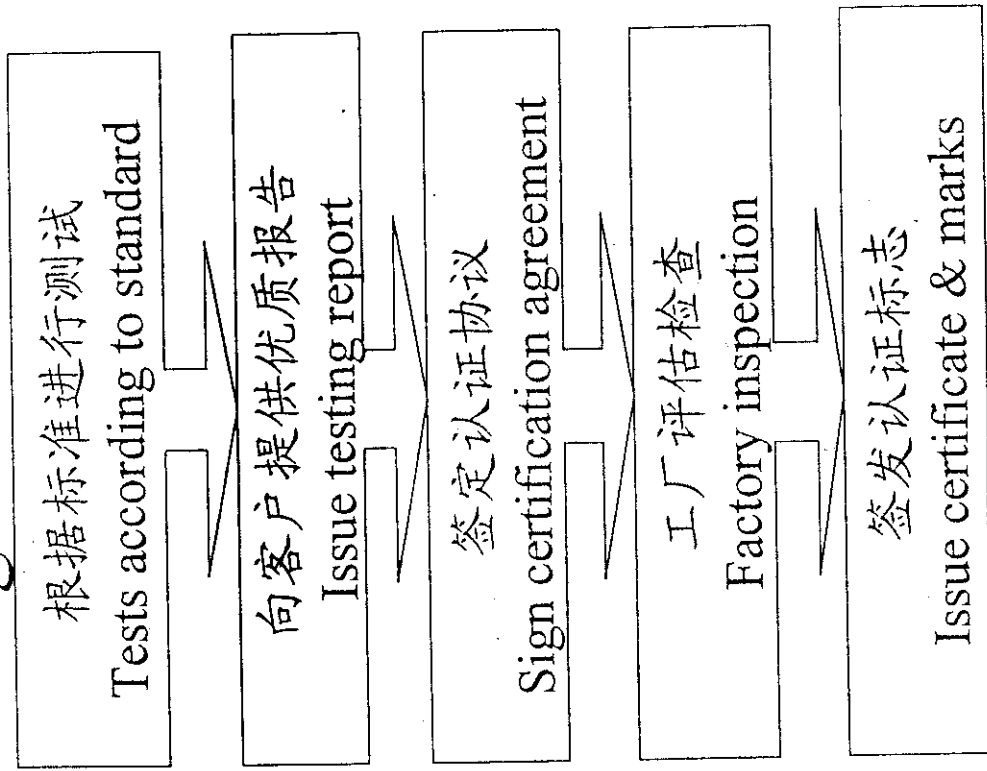 根据标准进行测试
Tests according to standard
向客户提供优质报告
Issue testing report
签定认证协议
Sign certification agreement
工厂评估检查
Factory inspection
签发认证标志
Issue certificate & marks